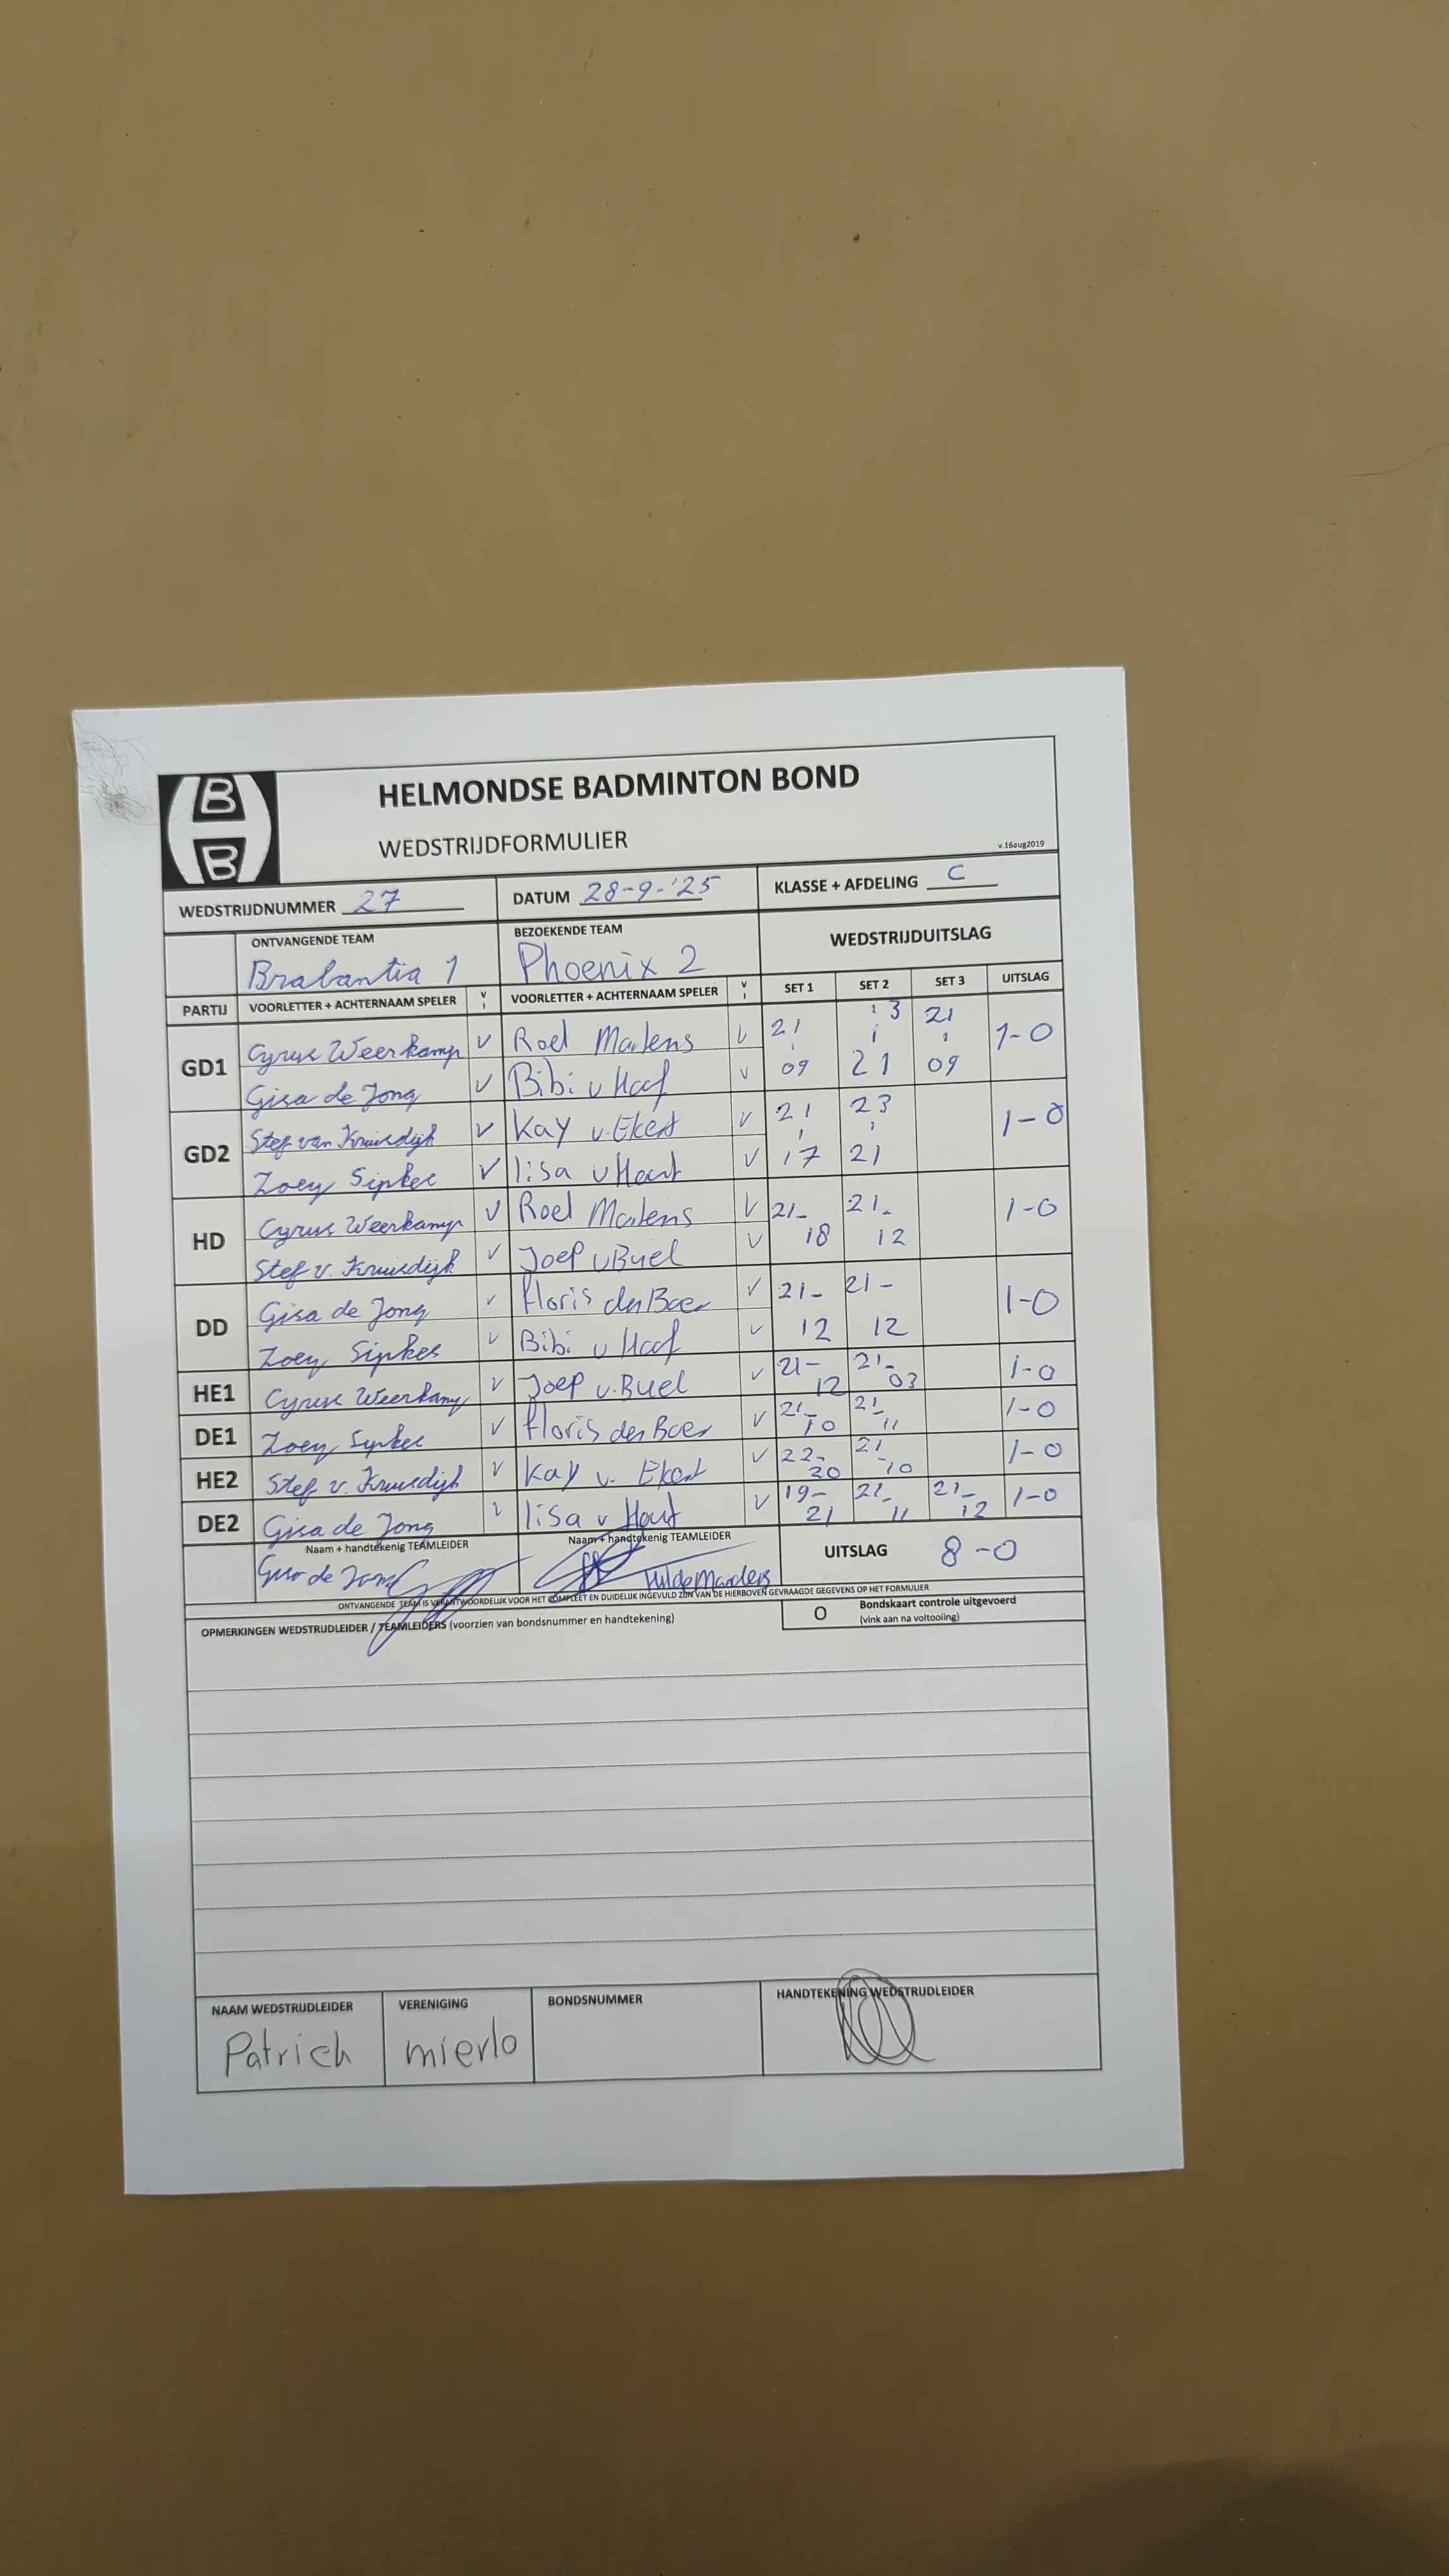 B
H
B
HELMONDSE BADMINTON BOND
WEDSTRIJDFORMULIER
v.16aug2019
WEDSTRIJDNUMMER 27 DATUM 28-9-'25 KLASSE + AFDELING C
ONTVANGENDE TEAM BEZOEKENDE TEAM WEDSTRIJDUITSLAG
Brabantia 1 Phoenix 2
PARTIJ VOORLETTER + ACHTERNAAM SPELER V VOORLETTER + ACHTERNAAM SPELER V SET 1 SET 2 SET 3 UITSLAG
GD1 Cyrus Weerkamp V Roel Martens V 21 13 21 1-0
Gisa de Jong V Bibi v Hoof V 09 21 09
GD2 Stef van Kruisdijk V Kay v. Ekert V 21 23 1-0
Zoey Sipkes V lisa v Hout V 17 21
HD Cyrus Weerkamp V Roel Martens V 21- 21- 1-0
Stef v. Kruisdijk V Joep v Buel V 18 12
DD Gisa de Jong V floris den Boer V 21- 21- 1-0
Zoey Sipkes V Bibi v Hoof V 12 12
HE1 Cyrus Weerkamp V Joep v. Buel V 21-12 21-03 1-0
DE1 Zoey Sipkes V floris den Boer V 21-10 21-11 1-0
HE2 Stef v. Kruisdijk V Kay v. Ekert V 22-20 21-10 1-0
DE2 Gisa de Jong V lisa v Hout V 19-21 21-11 21-12 1-0
Naam + handtekenig TEAMLEIDER Naam + handtekenig TEAMLEIDER UITSLAG 8-0
de Jong Hilde
ONTVANGENDE TEAM IS VERANTWOORDELIJK VOOR HET COMPLEET EN DUIDELIJK INGEVULD ZIJN VAN DE HIERBOVEN GEVRAAGDE GEGEVENS OP HET FORMULIER
OPMERKINGEN WEDSTRIJDLEIDER / TEAMLEIDERS (voorzien van bondsnummer en handtekening) O Bondskaart controle uitgevoerd
(vink aan na voltooiing)
NAAM WEDSTRIJDLEIDER VERENIGING BONDSNUMMER HANDTEKENING WEDSTRIJDLEIDER
Patrich mierlo